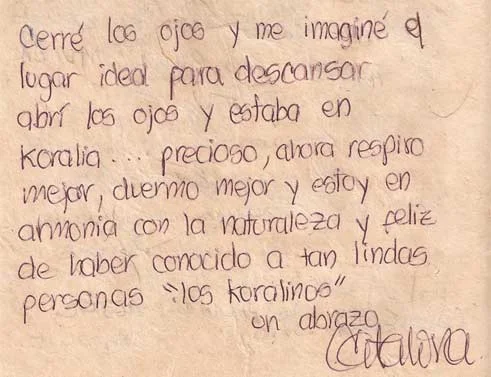 Cerré los ojos y me imaginé el
lugar ideal para descansar
abrí los ojos y estaba en
Koralia.... precioso, ahora respiro
mejor, duermo mejor y estoy en
armonia con la naturaleza y feliz
de haber conocido a tan lindas
personas "los koralinos"
un abrazo
Catalina.